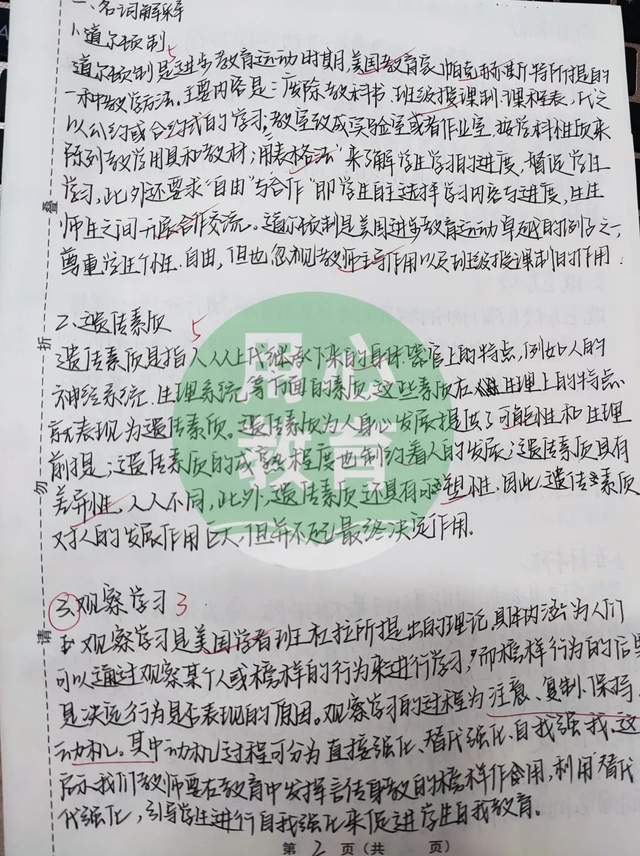 一、名词解释
1.道尔顿制 5
道尔顿制是进步教育运动时期,美国教育家帕克赫斯特所提的
一种教学方法。主要内容是:废除教科书、班级授课制、课程表,代之
以公约或合约式的学习;教室改成实验室或者作业室,按学科性质来
陈列教学用具和教材;用"表格法"来了解学生学习的进度,督促学生
学习,此外还要求"自由"与"合作"即学生自主选择学习内容与进度,生生
师生之间开展合作交流。道尔顿制是美国进步教育运动卓越的例子之一,
尊重学生个性、自由,但也忽视教师主导作用以及班级授课制的作用.
2.遗传素质 5
遗传素质是指人从上代继承下来的身体器官上的特点,例如人的
神经系统、生理系统等方面的素质,这些素质在生理上的特点
就表现为遗传素质。遗传素质为人身心发展提供了可能性和生理
前提;遗传素质的成熟程度也制约着人的发展;遗传素质具有
差异性,人人不同,此外,遗传素质还具有可塑性.因此,遗传素质
对人的发展作用巨大,但并不起最终决定作用.
3.观察学习 3
观察学习是美国学者班杜拉所提出的理论,具体内涵为人们
可以通过观察某个人或榜样的行为来进行学习,而榜样行为的后果
是决定行为是否表现的原因。观察学习的过程为注意、复制、保持、
动机。其中动机过程可分为直接强化、替代强化、自我强我,这
启示我们教师要在教育中发挥言传身教的榜样作用,利用替
代强化,引导学生进行自我强化来促进学生自我教育。
第 2 页(共 页)
请 勿 折 叠
用心
教育